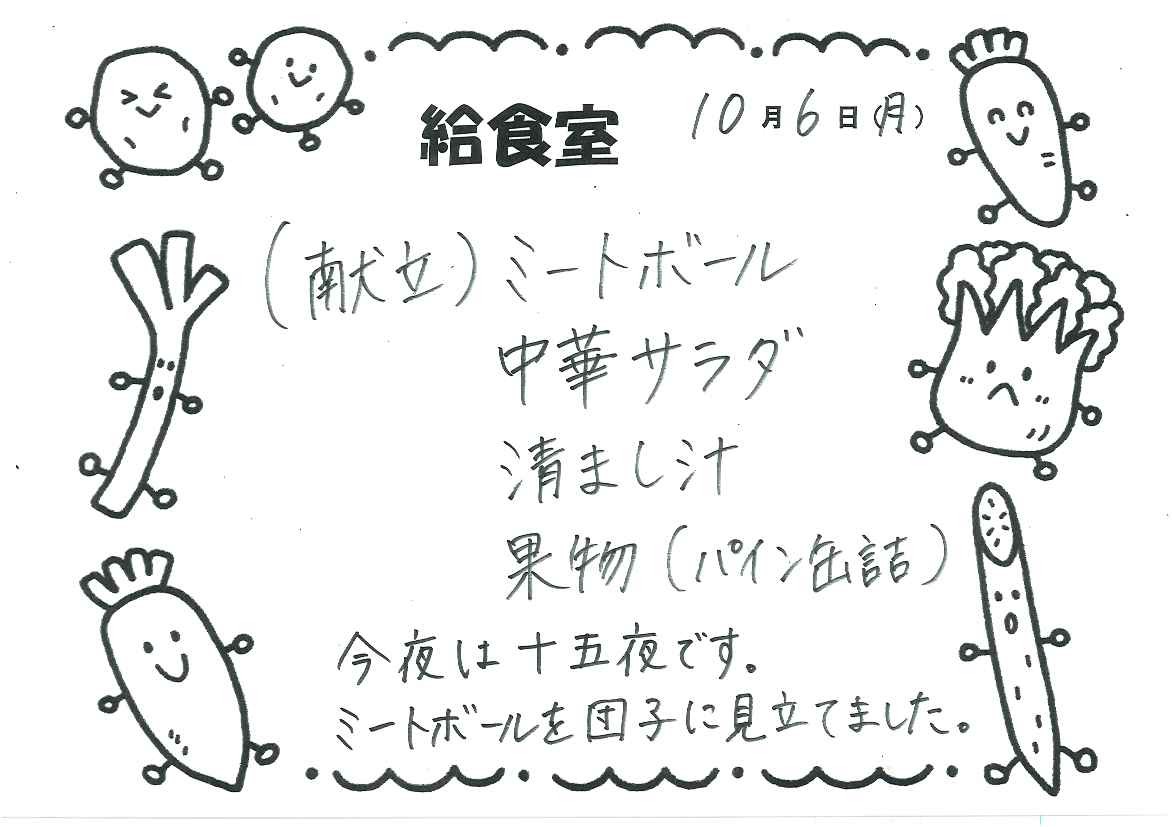 給食室 10月6日(月)
(献立)ミートボール
中華サラダ
清まし汁
果物(パイン缶詰)
今夜は十五夜です。
ミートボールを団子に見立てました。